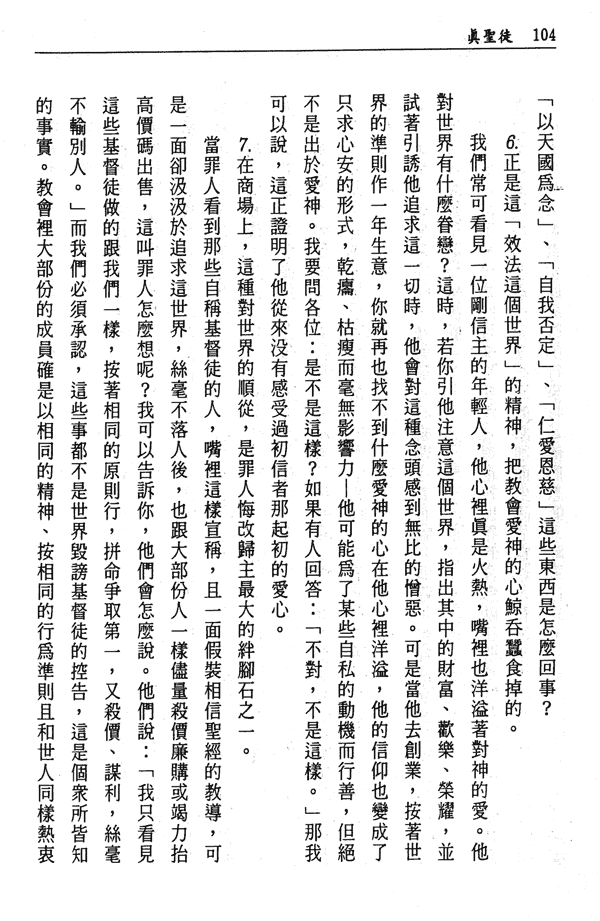 眞聖徒 104
「以天國爲念」、「自我否定」、「仁愛恩慈」這些東西是怎麼回事？
6.正是這「效法這個世界」的精神，把教會愛神的心鯨吞蠶食掉的。
我們常可看見一位剛信主的年輕人，他心裡眞是火熱，嘴裡也洋溢著對神的愛。他
對世界有什麼眷戀？這時，若你引他注意這個世界，指出其中的財富、歡樂、榮耀，並
試著引誘他追求這一切時，他會對這種念頭感到無比的憎惡。可是當他去創業，按著世
界的準則作一年生意，你就再也找不到什麼愛神的心在他心裡洋溢，他的信仰也變成了
只求心安的形式，乾癟、枯瘦而毫無影響力—他可能爲了某些自私的動機而行善，但絕
不是出於愛神。我要問各位：是不是這樣？如果有人回答：「不對，不是這樣。」那我
可以說，這正證明了他從來沒有感受過初信者那起初的愛心。
7.在商場上，這種對世界的順從，是罪人悔改歸主最大的絆腳石之一。
當罪人看到那些自稱基督徒的人，嘴裡這樣宣稱，且一面假裝相信聖經的教導，可
是一面卻汲汲於追求這世界，絲毫不落人後，也跟大部份人一樣儘量殺價廉購或竭力抬
高價碼出售，這叫罪人怎麼想呢？我可以告訴你，他們會怎麼說。他們說：「我只看見
這些基督徒做的跟我們一樣，按著相同的原則行，拼命爭取第一，又殺價、謀利，絲毫
不輸別人。」而我們必須承認，這些事都不是世界毀謗基督徒的控告，這是個衆所皆知
的事實。教會裡大部份的成員確是以相同的精神、按相同的行爲準則且和世人同樣熱衷